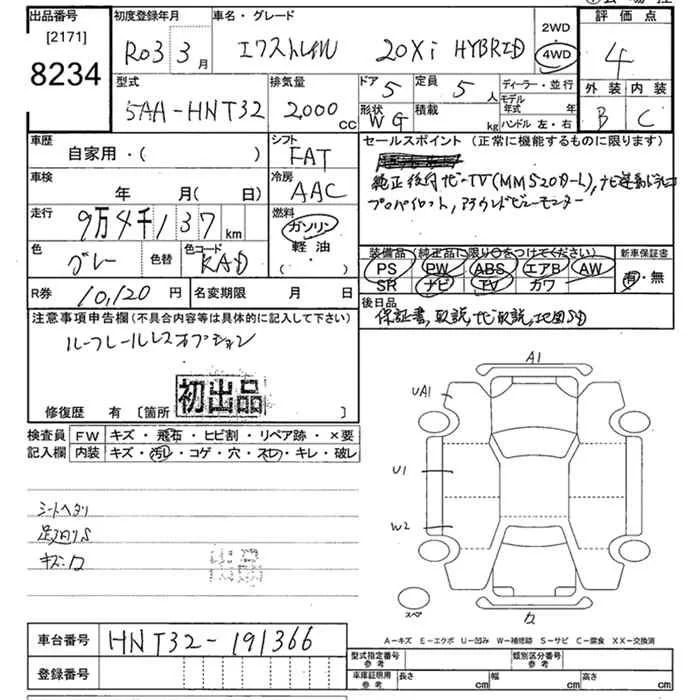 出品番号
[2171]
8234
初度登録年月
R03 3月
車名・グレード
エクストレイル 20Xi HYBRID
2WD
4WD
評価点
4
外装 内装
B C
型式
5AA-HNT32
排気量
2,000 cc
ドア
5
定員
5人
形状
WG
積載
kg
ディーラー・並行
モデル年式 年
ハンドル 左・右
車歴
自家用・( )
シフト
FAT
車検
年 月( 日)
冷房
AAC
走行
9万4千137km
燃料
ガソリン
軽油
( )
色
グレー
色替
色コード
KAD
R券
10,120円
名変期限 月 日
セールスポイント(正常に機能するものに限ります)
純正後付ナビ・TV(MM520D-L),ナビ連動ドラレコ
プロパイロット,アラウンドビューモニター
装備品(純正品に限り○をつけてください)
PS PW ABS エアB AW
SR ナビ TV カワ
新車保証書
有・無
後日品
保証書,取説,ナビ取説,地図SD
注意事項申告欄(不具合内容等は具体的に記入して下さい)
ルーフレールレスオプション
初出品
修復歴 有 [箇所 ]
検査員記入欄
FW キズ・飛石・ヒビ割・リペア跡・×要
内装 キズ・汚レ・コゲ・穴・スレ・キレ・破レ
シートヘタリ
足廻りS
A1
UA1
U1
W2
スペア
A-キズ E-エクボ U-凹み W-補修跡 S-サビ C-腐食 XX-交換済
車台番号
HNT32-191366
登録番号
型式指定番号 参考
類別区分番号 参考
車庫証明用 参考
長さ cm
幅 cm
高さ cm